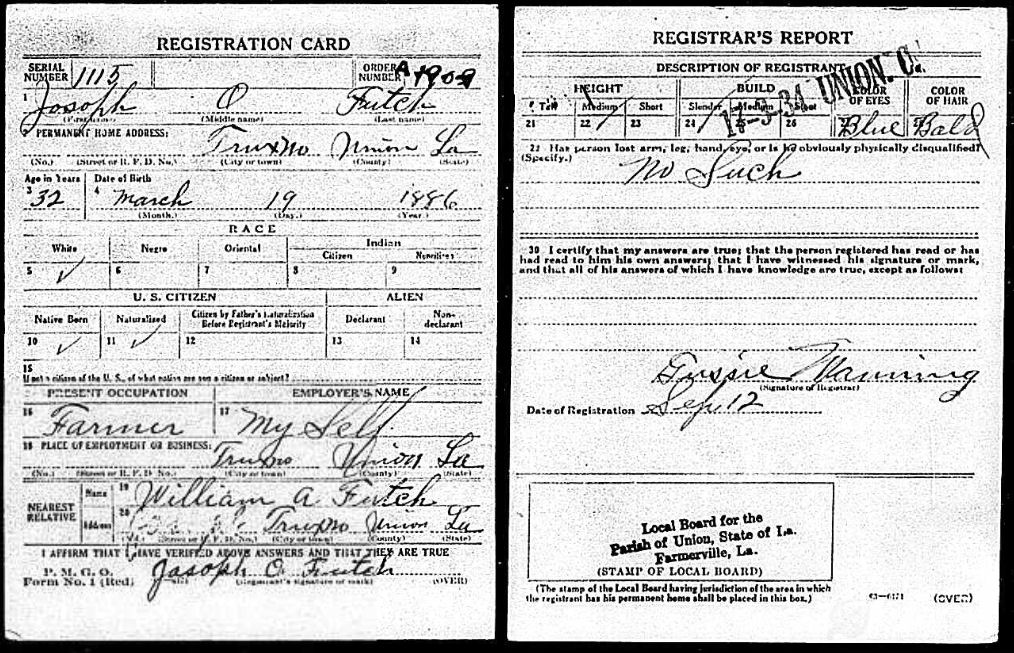 REGISTRATION CARD
SERIAL NUMBER 1115
ORDER NUMBER A 1909
1 Josoph O Futch
(First name) (Middle name) (Last name)
2 PERMANENT HOME ADDRESS:
Truxno Union La
(No.) (Street or R. F. D. No.) (City or town) (County) (State)
Age in Years Date of Birth
3 32 4 March 19 1886
(Month.) (Day.) (Year.)
RACE
White Negro Oriental Indian
Citizen Noncitizen
5 ✓ 6 7 8 9
U. S. CITIZEN ALIEN
Native Born Naturalized Citizen by Father's Naturalization Before Registrant's Majority Declarant Non-declarant
10 ✓ 11 ✓ 12 13 14
15
If not a citizen of the U. S., of what nation are you a citizen or subject?
PRESENT OCCUPATION EMPLOYER'S NAME
16 Farmer 17 My Self
18 PLACE OF EMPLOYMENT OR BUSINESS:
Truxno Union La
(No.) (Street or R. F. D. No.) (City or town) (County) (State)
NEAREST RELATIVE
Name 19 William A Futch
Address 20 Truxno Union La
(No.) (Street or R. F. D. No.) (City or town) (County) (State)
I AFFIRM THAT I HAVE VERIFIED ABOVE ANSWERS AND THAT THEY ARE TRUE
P. M. G. O.
Form No. 1 (Red) Jasoph O. Futch
(Registrant's signature or mark) (OVER)
REGISTRAR'S REPORT
17-3-34 UNION. C. La.
DESCRIPTION OF REGISTRANT
HEIGHT BUILD COLOR OF EYES COLOR OF HAIR
Tall Medium Short Slender Medium Stout
21 22 23 24 25 26 Blue Bald
29 Has person lost arm, leg, hand, eye, or is he obviously physically disqualified?
(Specify.) No Such
30 I certify that my answers are true; that the person registered has read or has
had read to him his own answers; that I have witnessed his signature or mark,
and that all of his answers of which I have knowledge are true, except as follows:
Gussie Manning
(Signature of Registrar)
Date of Registration Sep. 12
Local Board for the
Parish of Union, State of La.
Farmerville, La.
(STAMP OF LOCAL BOARD)
(The stamp of the Local Board having jurisdiction of the area in which
the registrant has his permanent home shall be placed in this box.)
(OVER)